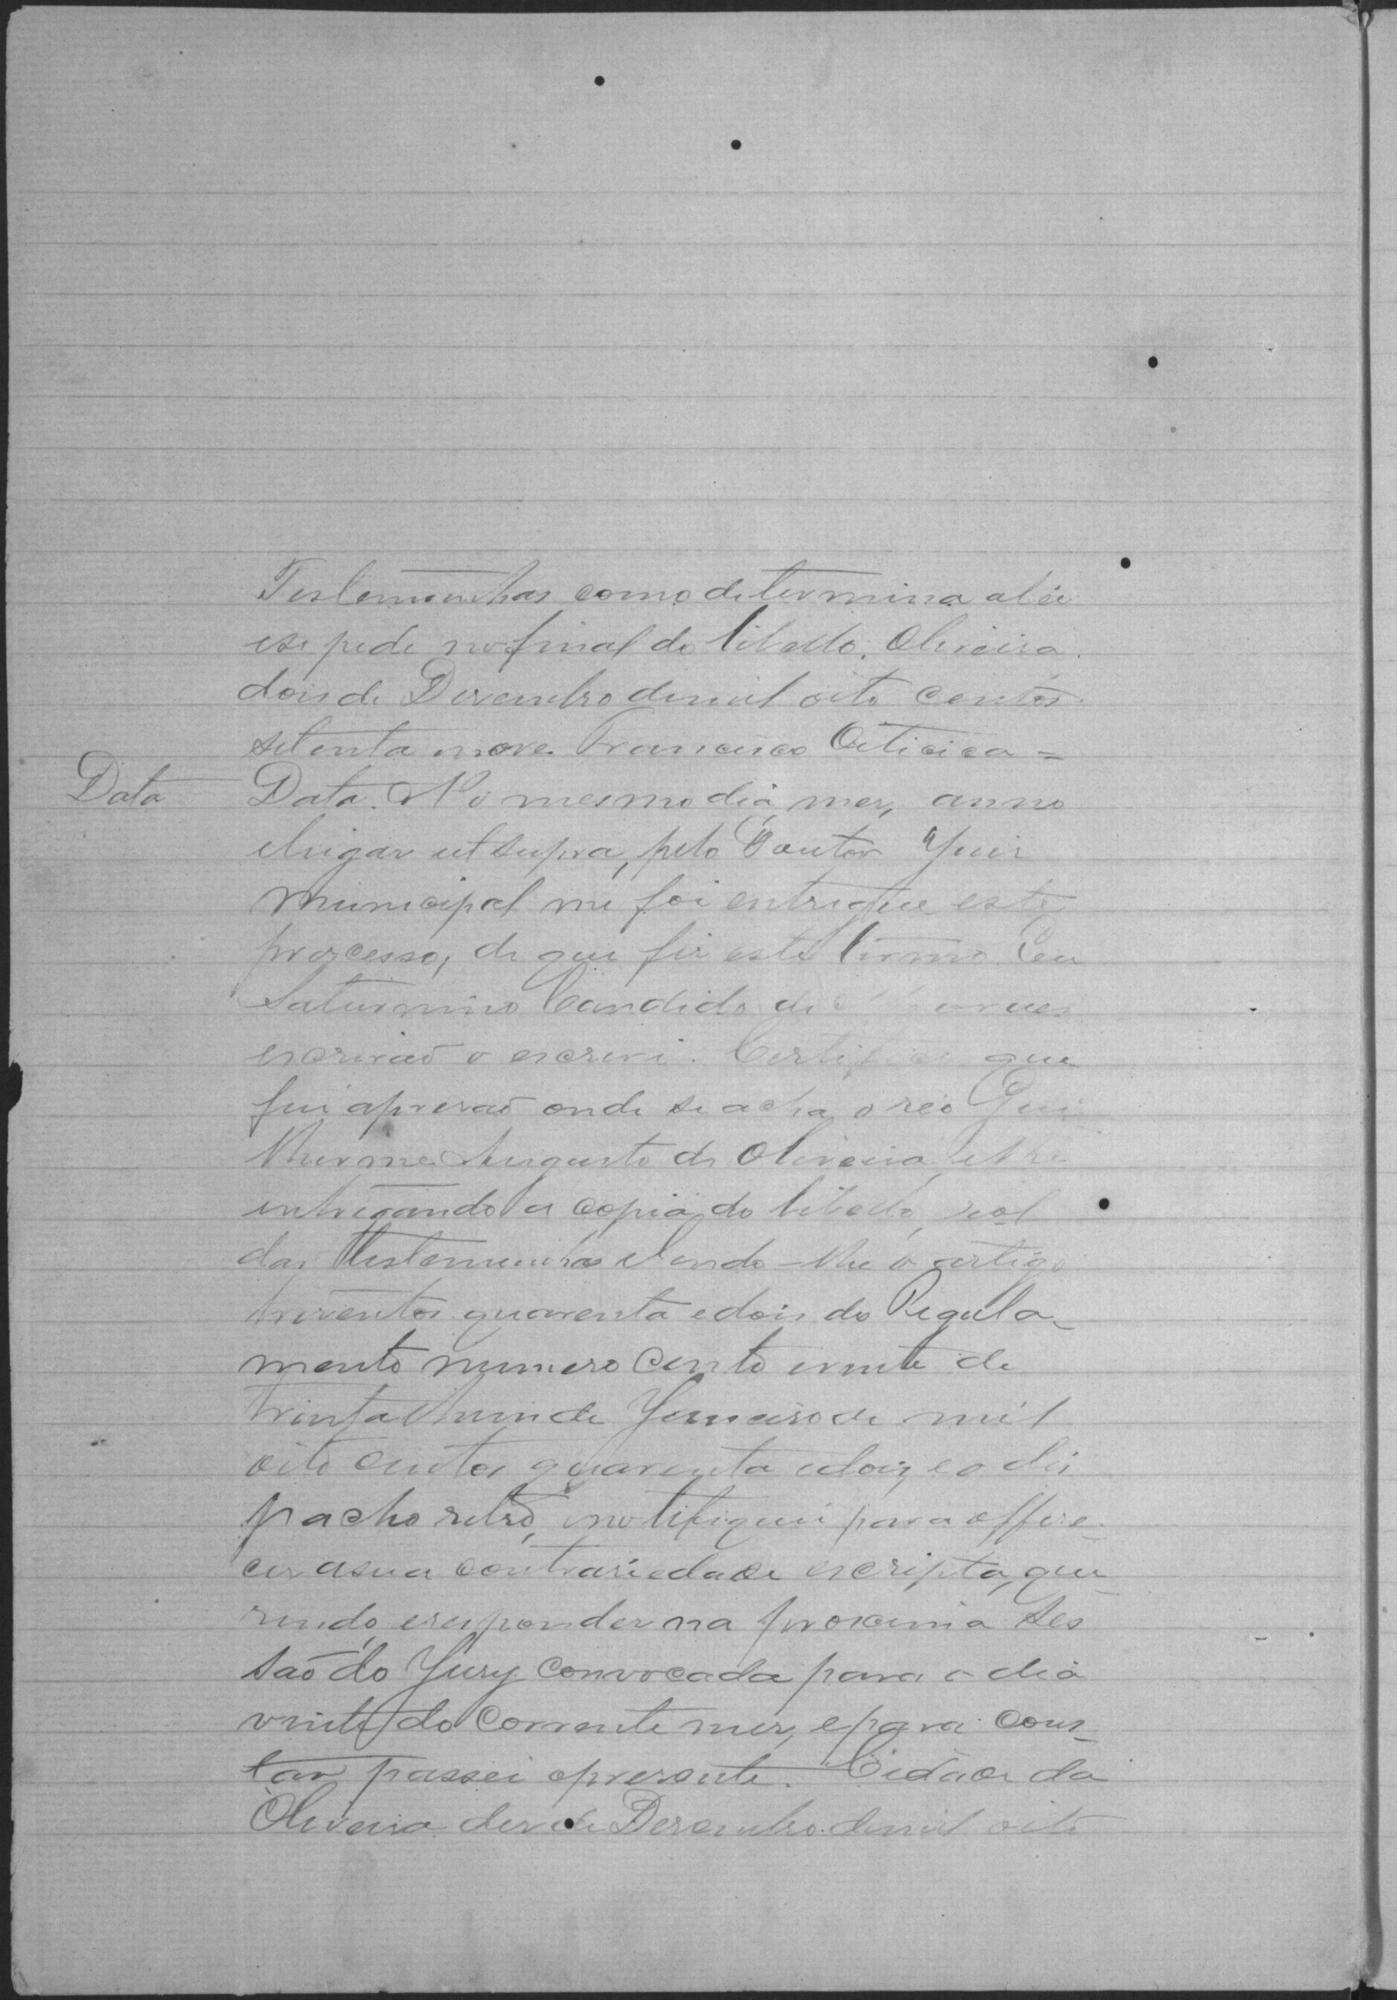 Testemunhas como determina alei
ese pede nofinal do libello. Oliveira
dois de Dezembro demil oito centos
setenta enove. Francisco Oiticica =
Data
Data. No mesmo dia, mez, anno
elugar utsupra, pelo Doutor Juiz
Municipal me foi entregue este
processo, de que fiz este termo. Eu
Saturnino Candido de
escrivaõ o escrevi. Certifico que
fui aprezaõ onde se acha o réo Gui
lherme Augusto de Oliveira elhe
entregando a copia do libello, rol
das testemunhas elendo-lhe o artigo
trezentos quarenta edois do Regula-
mento numero cento evinte de
trinta ehum de Janeiro de mil
oito centos quarenta edois, eo dis
pacho retro, onotifiquei para offere-
cer asua contrariedade escripta, que-
rendo, eresponder na proxima Ses
saõ do Jury convocada para o dia
vinte do corrente mez, epara cons-
tar passei oprezente. Cidade da
Oliveira dez de Dezembro demil oito